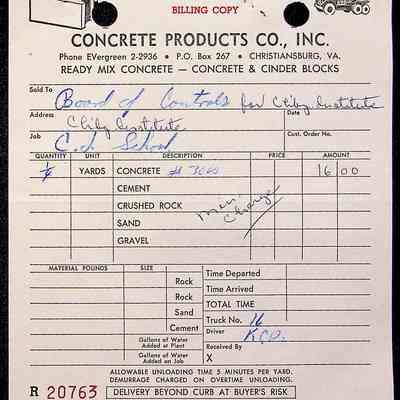 BILLING COPY
CONCRETE PRODUCTS CO., INC.
Phone EVergreen 2-2936 • P.O. Box 267 • CHRISTIANSBURG, VA.
READY MIX CONCRETE — CONCRETE & CINDER BLOCKS
Sold To Board of Controls for Institute
Address Institute Date
Job School Cust. Order No.
QUANTITY UNIT DESCRIPTION PRICE AMOUNT
YARDS CONCRETE # 3000 16 00
CEMENT
CRUSHED ROCK Min.
SAND Charge
GRAVEL
MATERIAL POUNDS SIZE Time Departed
Rock
Rock Time Arrived
Sand TOTAL TIME
Cement Truck No. 16
Gallons of Water Added at Plant Driver
Gallons of Water Added at Job Received By X
ALLOWABLE UNLOADING TIME 5 MINUTES PER YARD.
DEMURRAGE CHARGED ON OVERTIME UNLOADING.
R 20763 DELIVERY BEYOND CURB AT BUYER'S RISK